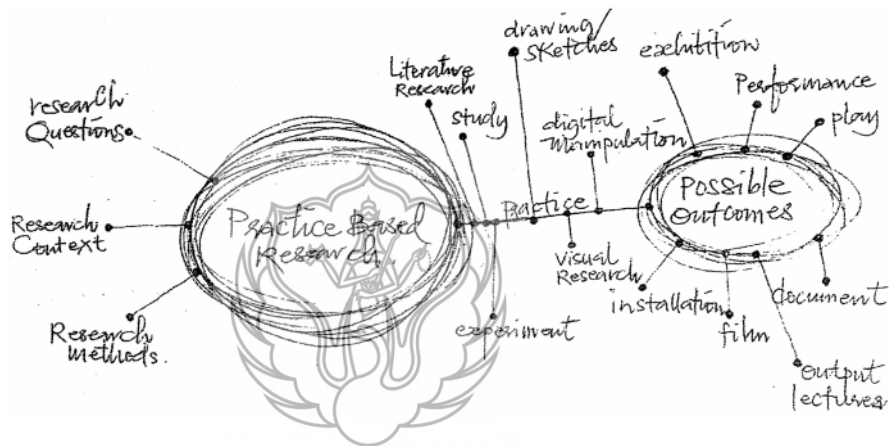 research
Questions
Research
Context
Research
methods.
Practice Based
Research.
Literature
Research
study
drawing/
sketches
digital
manipulation
practice
visual
Research
experiment
exhibition
Performance
play
Possible
Outcomes
installation
film
document
output
lectures